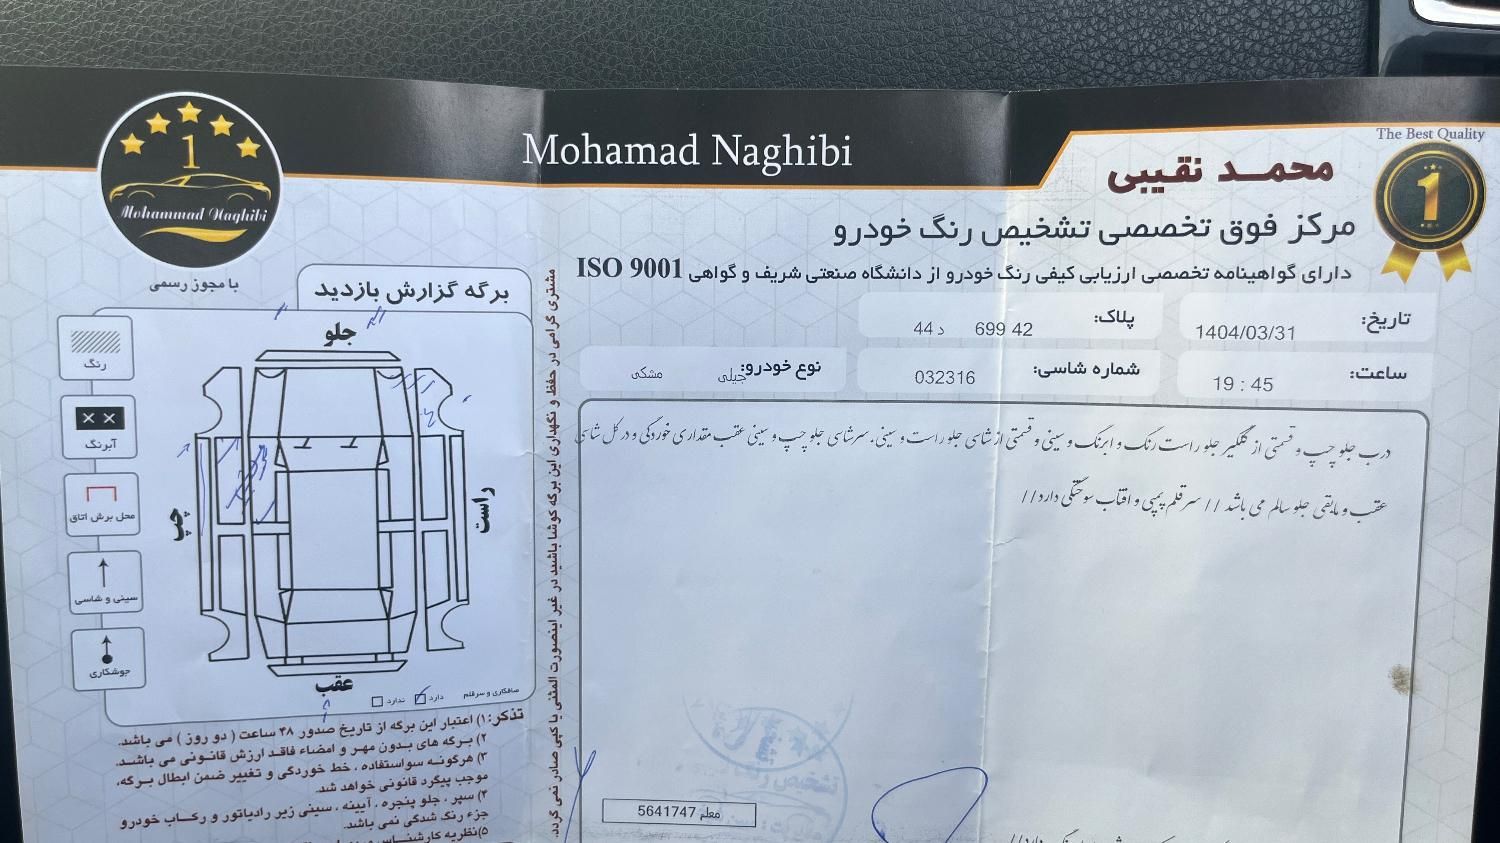 The Best Quality
1
Mohamad Naghibi
محمـد نقیبی
1
Mohammad Naghibi
با مجوز رسمی
مرکز فوق تخصصی تشخیص رنگ خودرو
دارای گواهینامه تخصصی ارزیابی کیفی رنگ خودرو از دانشگاه صنعتی شریف و گواهی ISO 9001
تاریخ: 1404/03/31
پلاک: 42 699 د 44
ساعت: 19 : 45
شماره شاسی: 032316
نوع خودرو: جیلی مشکی
درب جلو چپ و قسمتی از گلگیر جلو راست رنگ و ابرنگ و سینی و قسمتی از شاسی جلو راست و سینی. سرشاسی جلو چپ و سینی عقب مقداری خوردگی و در کل شاسی
عقب و مابقی جلو سالم می باشد // سر قلم پمپی و افتاب سوختگی دارد//
دارد//
معلم 5641747
تشخیص رنگ
مشتری گرامی در حفظ و نگهداری این برگه کوشا باشید در غیر اینصورت المثنی یا کپی صادر نمی گردد.
برگه گزارش بازدید
جلو
رنگ
آبرنگ
محل برش اتاق
سینی و شاسی
جوشکاری
چپ
راست
عقب
صافکاری و سرقلم دارد ندارد
تذکر: ۱) اعتبار این برگه از تاریخ صدور ۴۸ ساعت ( دو روز ) می باشد.
۲) برگه های بدون مهر و امضاء فاقد ارزش قانونی می باشد.
۳) هرگونه سواستفاده ، خط خوردگی و تغییر ضمن ابطال برگه،
موجب پیگرد قانونی خواهد شد.
۴) سپر ، جلو پنجره ، آیینه ، سینی زیر رادیاتور و رکاب خودرو
جزء رنگ شدگی نمی باشد.
۵) نظریه کارشناس